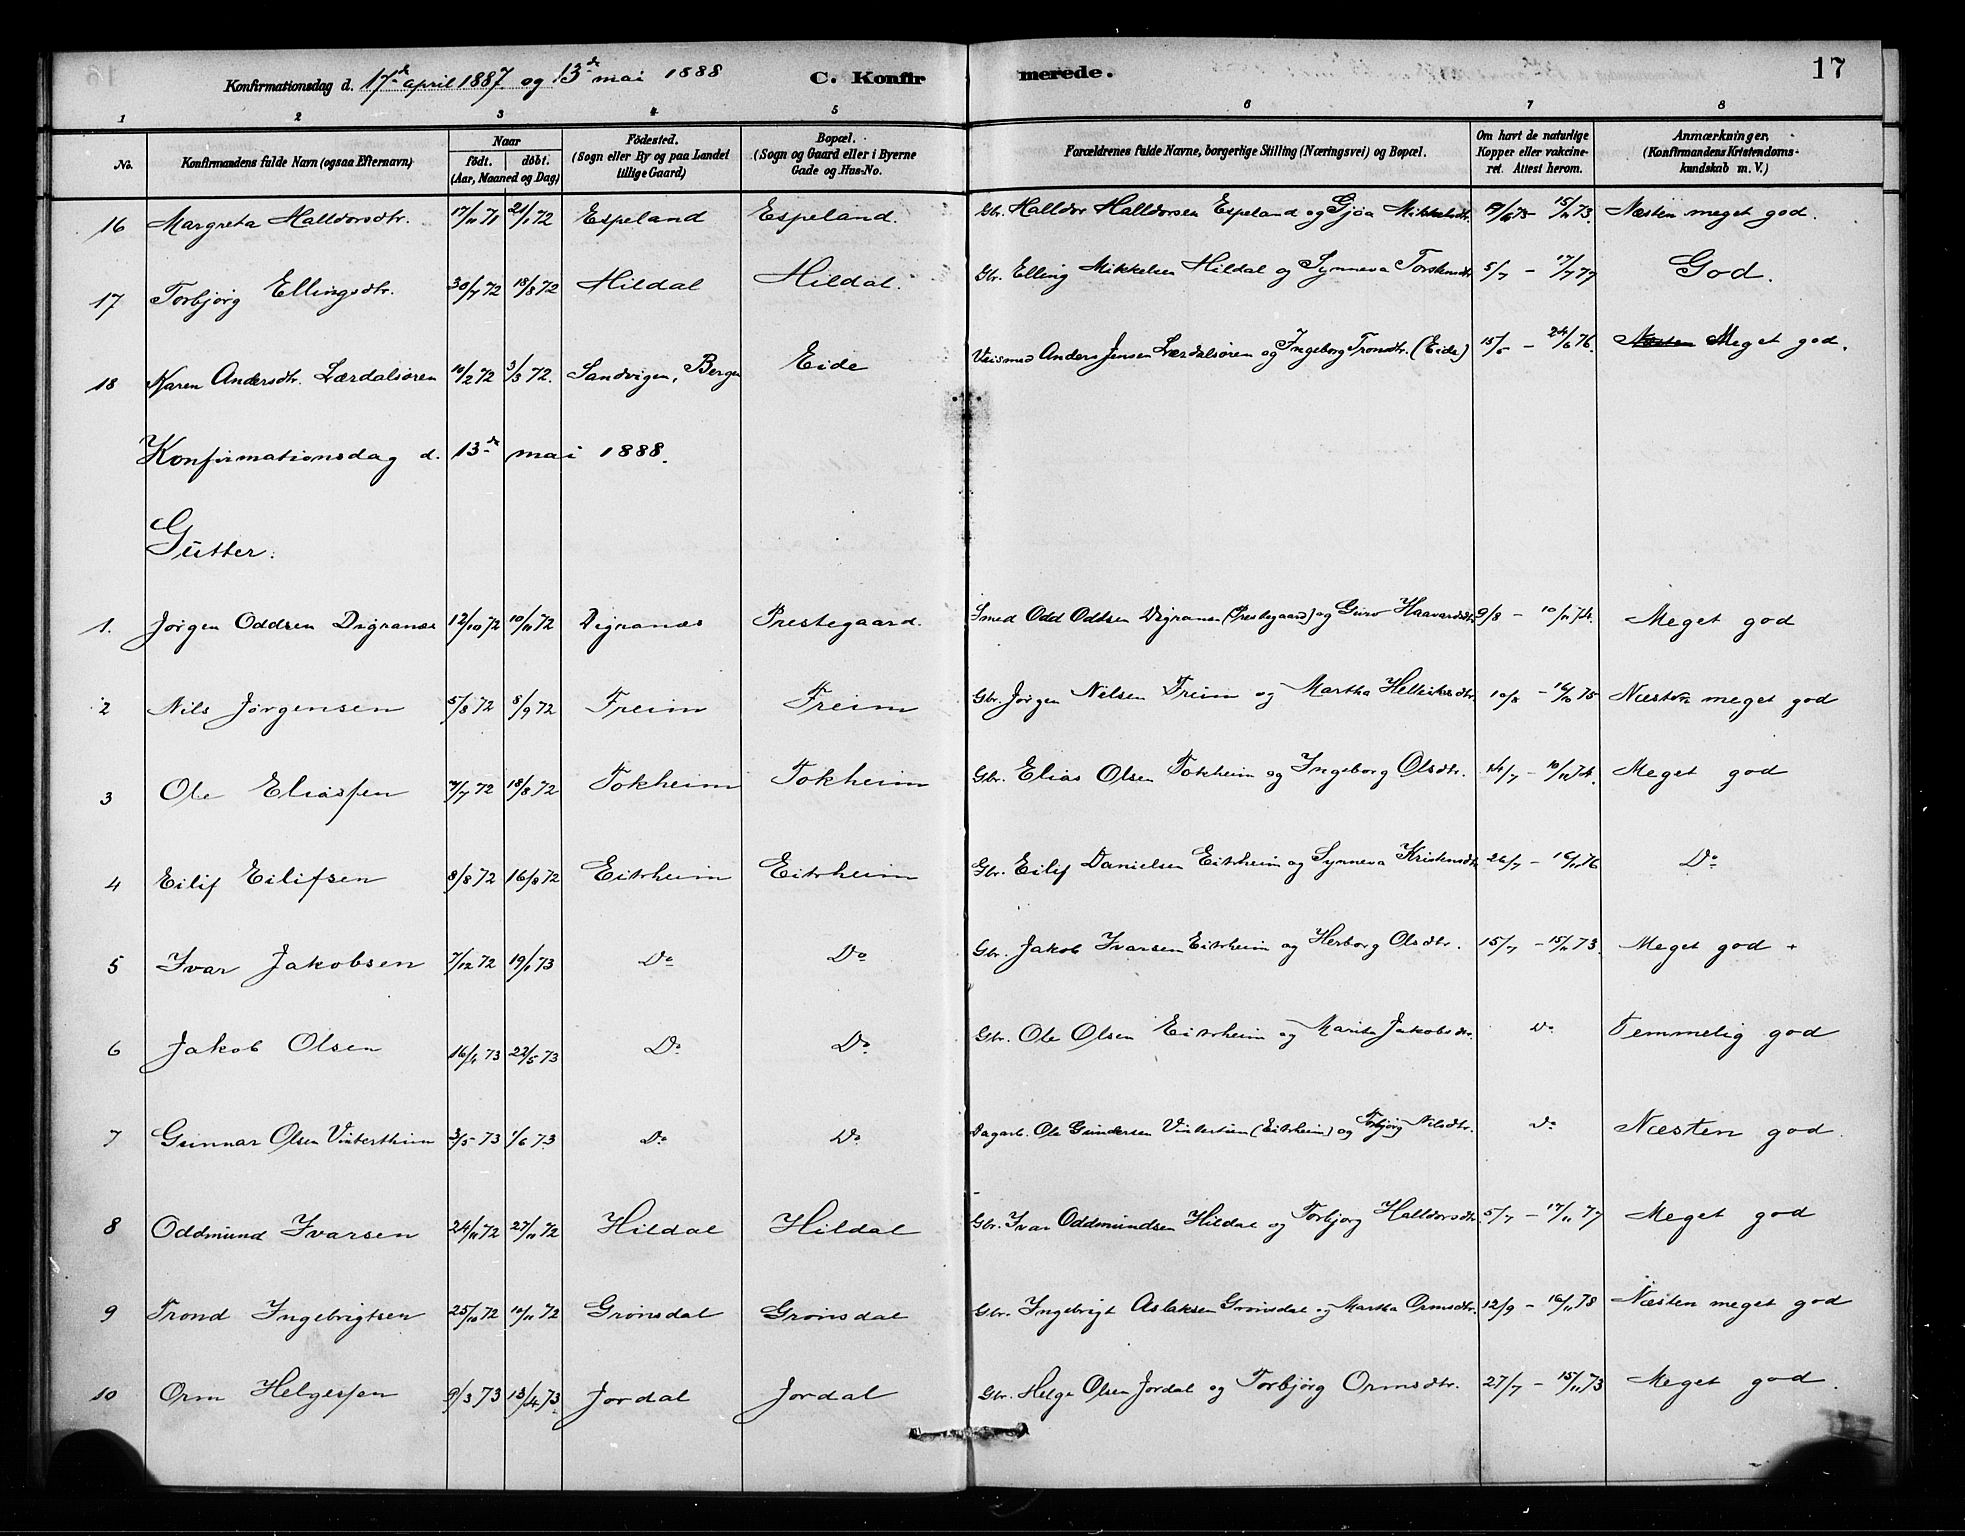 Konfirmationsdag d. 17de april 1887. og 13de mai 1888 C. Konfirmerede. 17
1 2 3 4 5 6 7 8
No. Konfirmandens fulde Navn (ogsaa Efternavn) Naar født. døbt. (Aar, Maaned og Dag) Fødested. (Sogn eller By og paa Landet tillige Gaard) Bopæl. (Sogn og Gaard eller i Byerne Gade og Hus-No. Forældrenes fulde Navne, borgerlige Stilling (Næringsvei) og Bopæl. Om havt de naturlige Kopper eller vakcineret. Attest herom. Anmærkninger. (Konfirmandens Kristendomskundskab m. V.)
16 Margreta Halldorsdtr. 17/11 71 21/1 72 Espeland Espeland. Gbr. Halldor Halldorsen Espeland og Gjøa Mikkelsdtr. 15/11 73. Næsten meget god.
17 Torbjørg Ellingsdtr. 30/7 72 18/8 72 Hildal Hildal. Gbr. Elling Mikkelsen Hildal og Synneva Torstensdtr 5/7 – 17/7 77 God.
18 Karen Andersdtr. Lærdalsøren 10/2 72 3/3 72. Sandvigen, Bergen Eide Anders Jensen Lærdalsøren og Ingeborg Tronsdtr. (Eide) 15/5 – 24/6 76. Næsten Meget god.
Konfirmationsdag d. 13de mai 1888.
Gutter.
1. Jørgen Oddsen Digranæs 12/10 72 10/11 72 Digranæs Prestegaard. Smed Odd Oddsen Digranæs (Prestegaard) og Guro Haavardsdtr. 9/8 – 10/11 74. Meget god
2 Nils Jørgensen 5/8 72 8/9 72 Freim Freim Gbr. Jørgen Nilsen Freim og Martha Helliksdtr. 10/8 – 16/10 75 Næsten meget god
3 Ole Eliassen 7/7 72 18/8 72 Tokheim Tokheim Gbr. Elias Olsen Tokheim og Ingeborg Olsdtr. 14/7 – 10/11 74. Meget god
4 Eilif Eilifsen 8/8 72 16/8 72 Eitrheim Eitrheim Gbr. Eilif Danielsen Eitrheim og Synneva Kristensdtr 26/7 – 16/11 76 Do
5 Ivar Jakobsen 7/12 72 19/1 73 Do Do Gbr. Jakob Ivarsen Eitrheim og Herborg Olsdtr. 15/7 – 15/11 73. Meget god +
6 Jakob Olsen 16/4 73 22/5 73 Do Do Gbr. Ole Olsen Eitrheim og Marita Jakobsdtr. Do Temmelig god
7 Gunnar Olsen Vinterthun 3/5 73 1/6 73 Do Do Dagarb. Ole Gundersen Vintertun (Eitrheim) og Torbjørg Nilsdtr. Do Næsten god.
8 Oddmund Ivarsen 24/11 72 27/11 72 Hildal Hildal Gbr. Ivar Oddmundsen Hildal og Torbjørg Halldorsdtr. 5/7 – 17/11 77 Meget god
9 Trond Ingebrigtsen 25/10 72 10/11 72 Grønsdal Grønsdal Gbr. Ingebrigt Aslaksen Grønsdal og Martha Ormsdtr. 12/9 – 16/11 78 Næsten meget god
10 Orm Helgessen 9/3 73 13/4 73 Jordal Jordal Gbr. Helge Olsen Jordal og Torbjørg Ormsdtr. 27/7 – 15/11 73 Meget god.